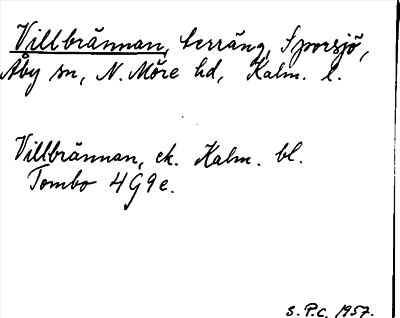 Villbrännan, terräng, Sporsjö,
Åby sn, N. Möre hd, Kalm. l.
Villbrännan, ek. Kalm. bl.
Tombo 4G9e.
S.P.C. 1957.